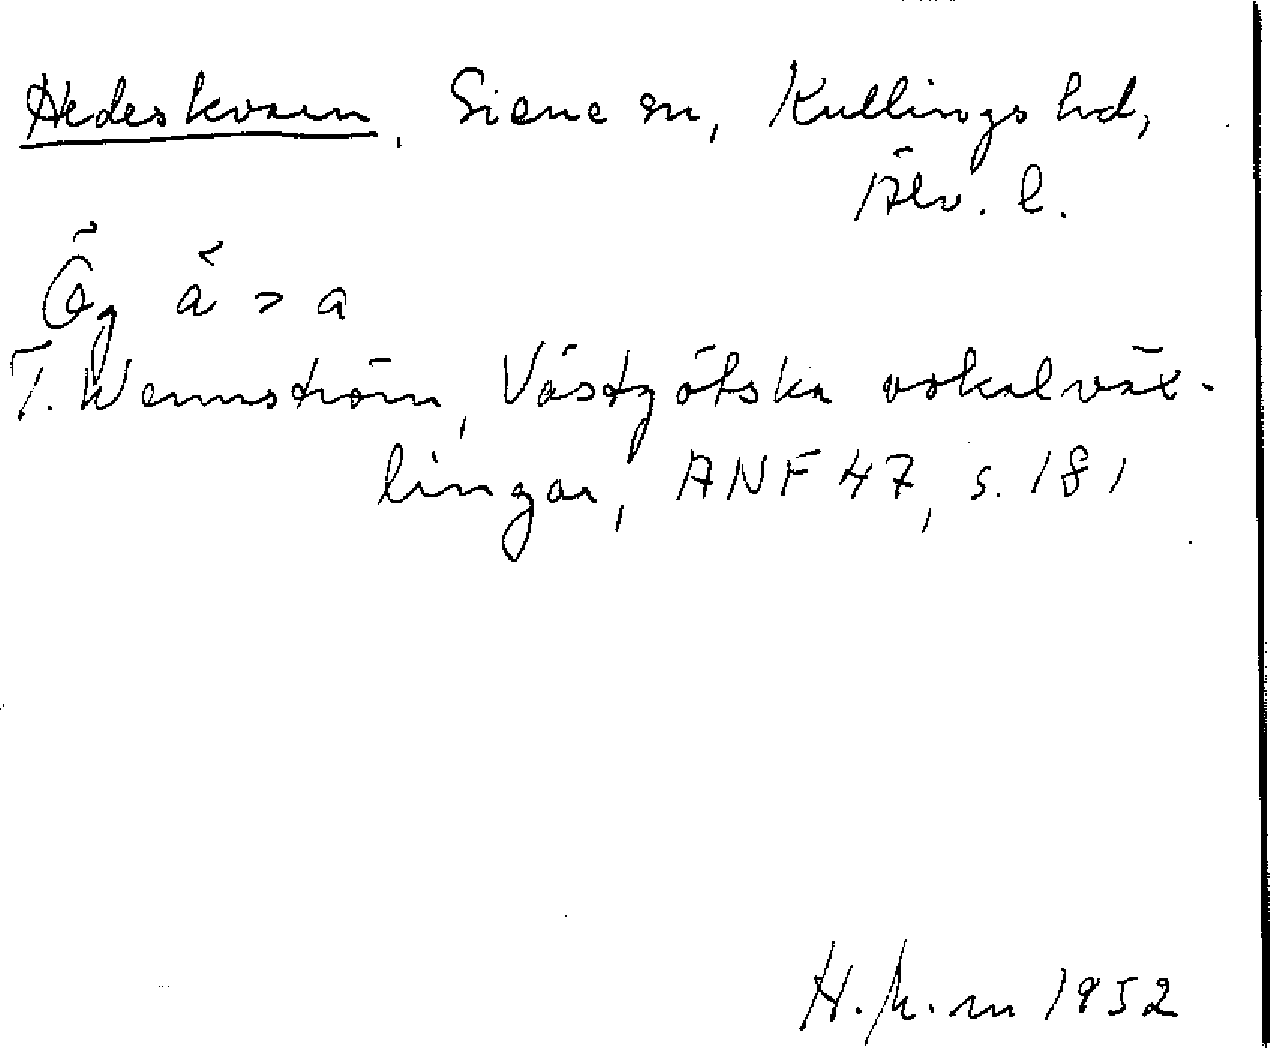 Hedeskvarn, Siene sn, Kullings hd,
Älv. l.
Ög ä > a
T. Wennström, Västgötska vokalväx-
lingar, ANF 47, s. 181
1952